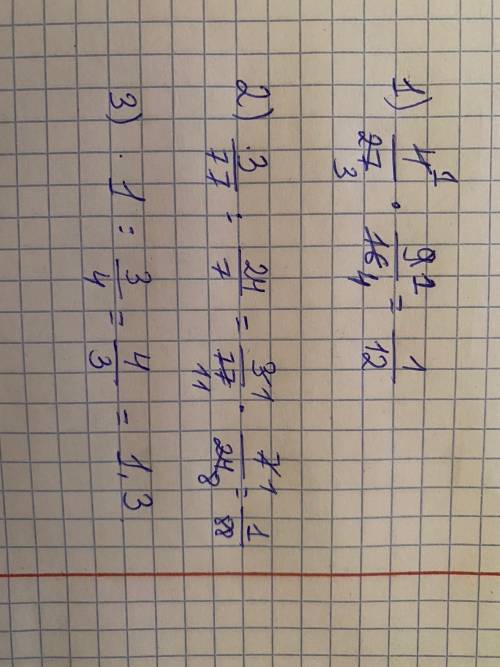 1) 4 1/27 3 · 9 1/16 4 = 1/12
2) 3/77 : 24/7 = 3 1/77 11 · 7 1/24 8 = 1/88
3) · 1 : 3/4 = 4/3 = 1,3